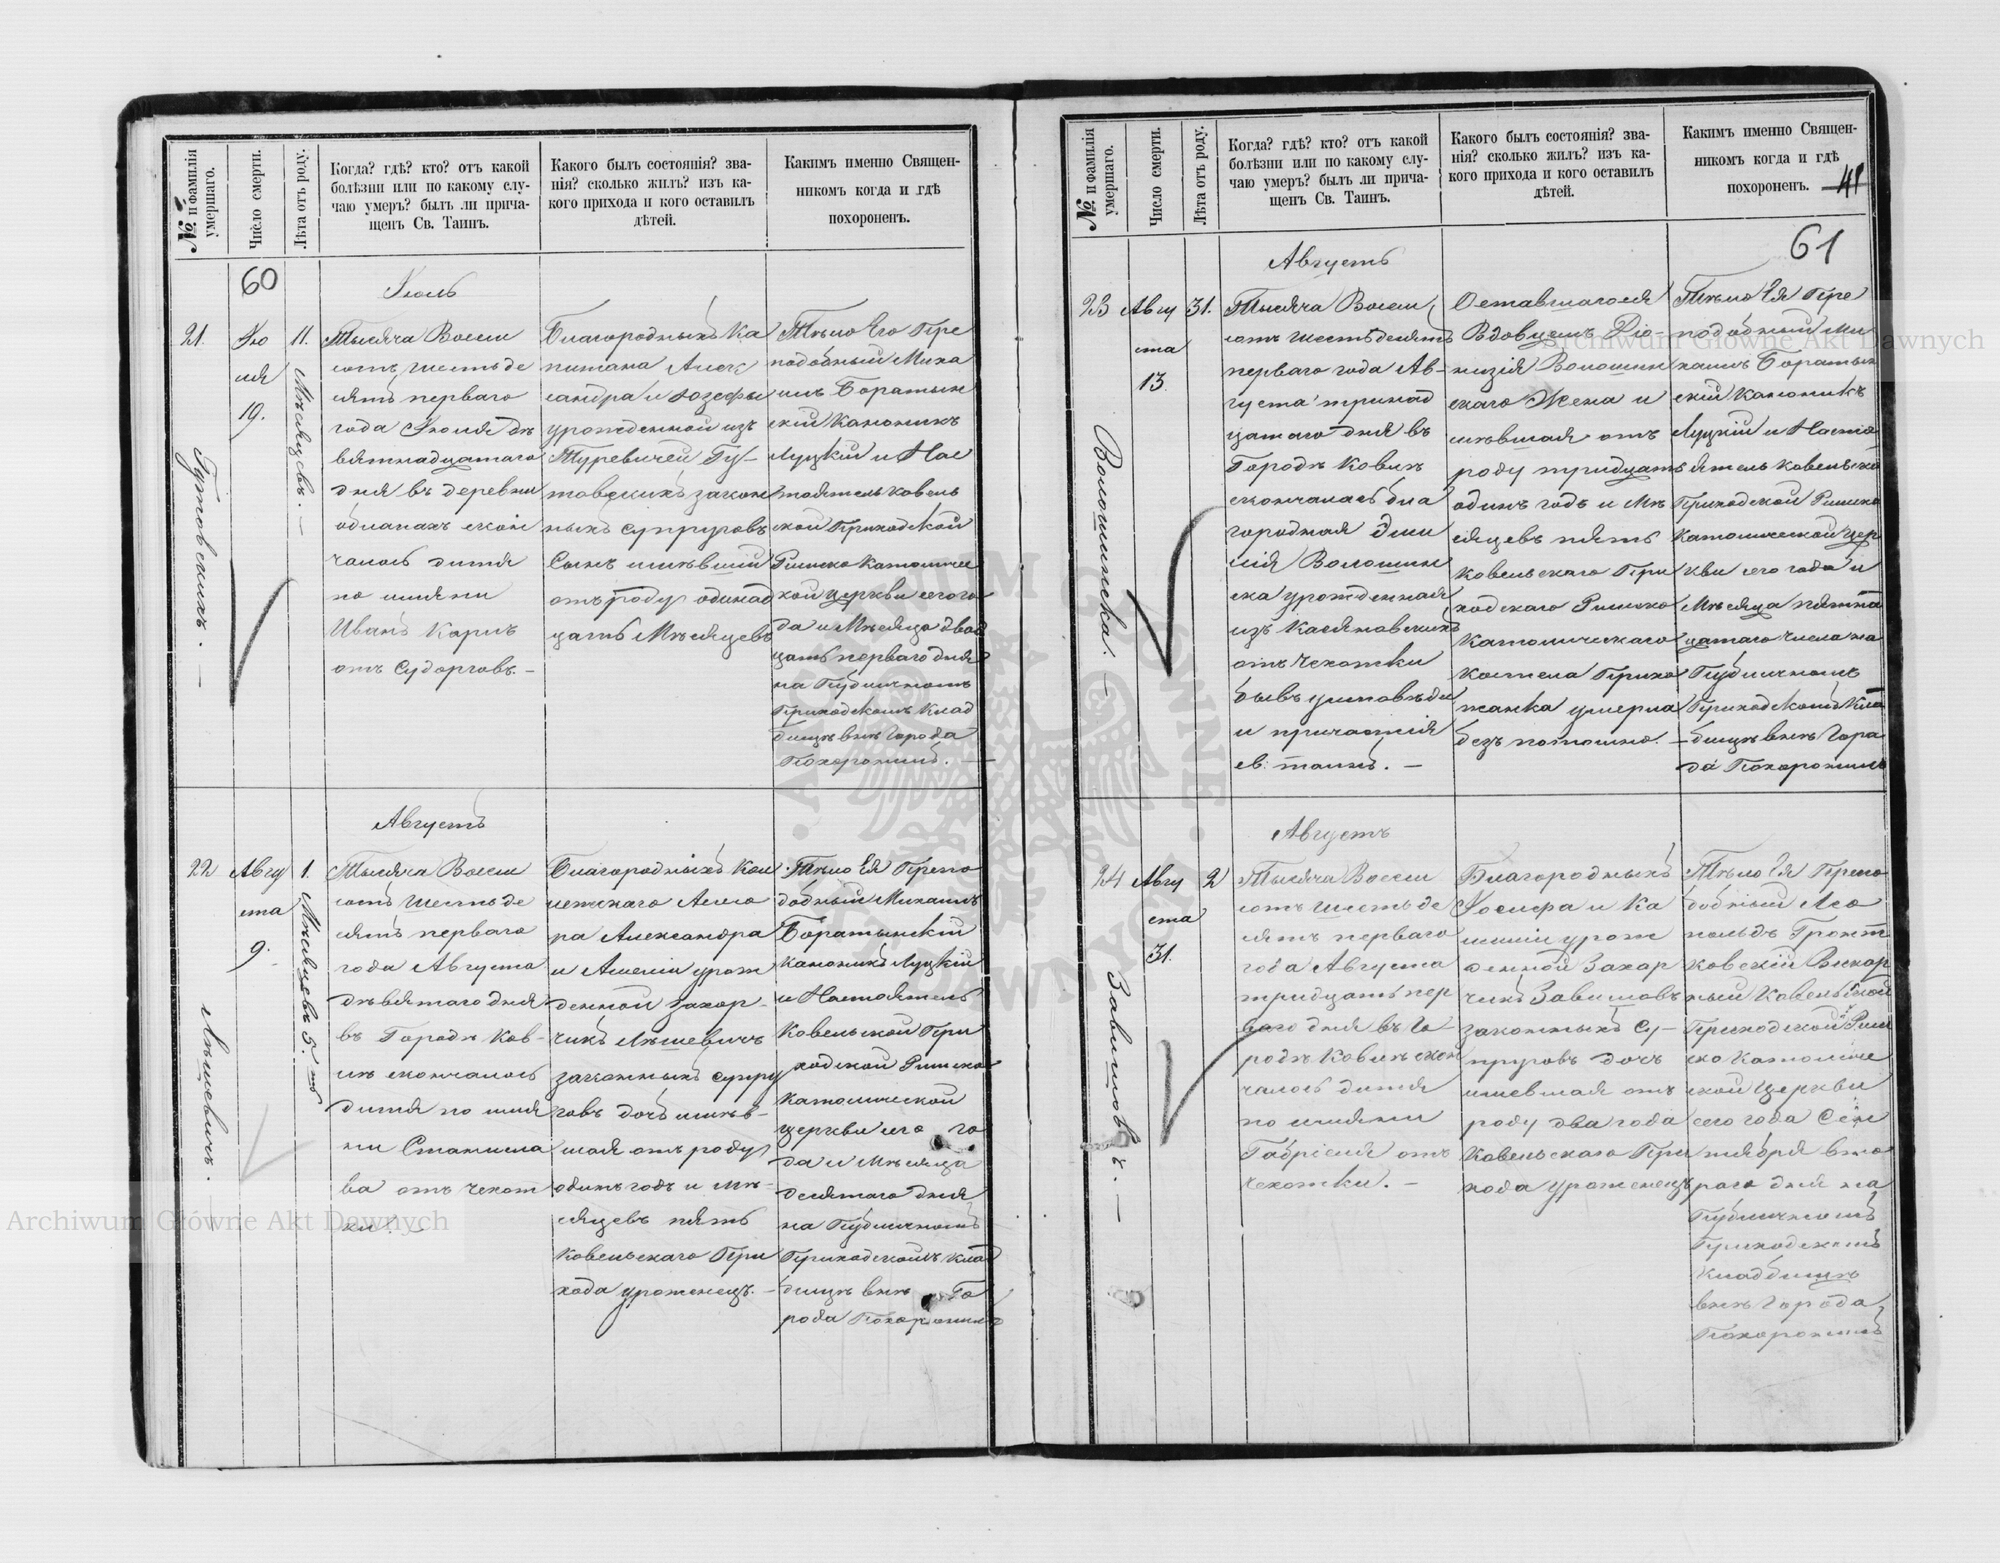 № и фамилія умершаго.
Число смерти.
Лѣта отъ роду.
Когда? гдѣ? кто? отъ какой
болѣзни или по какому слу-
чаю умеръ? былъ ли прича-
щенъ Св. Таинъ.
Какого былъ состоянія? зва-
нія? сколько жилъ? изъ ка-
кого прихода и кого оставилъ
дѣтей.
Какимъ именно Священ-
никомъ когда и гдѣ
похороненъ.
60
21.
Гутовскихъ. —
Ію
ля
19.
11.
Мѣсяцевъ. —
Іюль
Тысяча Восем
сотъ шестьде
сятъ перваго
года Іюля де
вятнадцатаго
дня въ деревни
скон
чалось дитя
по имени
Иванъ Карлъ
отъ Судорговъ. —
Благородныхъ Ка
питана Алек
сандра и Юзефы
урожденной изъ
Туревичей Гу-
товскихъ закон
ныхъ супруговъ
Сынъ имѣвшій
отъ роду одинад
цать Мѣсяцевъ
Тѣло Его Пре
подобный Миха
илъ Боратын
скій Каноникъ
Луцкій и Нас
тоятель Ковель
ской Приходской
Римско Католичес
кой церкви сего го
да и Мѣсяца двад
цать перваго дня
на Публичномъ
Приходскомъ Клад
бищѣ внѣ Города
Похоронилъ. —
22
Лѣшевичъ. —
Авгу
ста
9.
1.
Мѣсяцевъ 5.
Августъ
Тысяча Восем
сотъ шестьде
сятъ перваго
года Августа
девятаго дня
въ Городѣ Ков-
лѣ скончалось
дитя по име
ни Станисла
ва отъ чехот
ки. —
Благородныхъ Кол
лежскаго Асесо
ра Александра
и Амеліи урож
денной Захар-
чикъ Лѣшевичъ
законныхъ супру
говъ дочь имѣв-
шая отъ роду
одинъ годъ и мѣ-
сяцевъ пять
Ковельскаго При
хода уроженецъ. —
Тѣло Ея Препо
добный Михаилъ
Боратынскій
Каноникъ Луцкій
и Настоятель
Ковельской При
ходской Римско
Католической
церкви сего го
да и Мѣсяца
десятаго дня
на Публичномъ
Приходскомъ Клад
бищѣ внѣ Го
рода Похоронилъ
№ и фамилія умершаго.
Число смерти.
Лѣта отъ роду.
Когда? гдѣ? кто? отъ какой
болѣзни или по какому слу-
чаю умеръ? былъ ли прича-
щенъ Св. Таинъ.
Какого былъ состоянія? зва-
нія? сколько жилъ? изъ ка-
кого прихода и кого оставилъ
дѣтей.
Какимъ именно Священ-
никомъ когда и гдѣ
похороненъ.
41
61
23
Волошинска. —
Авгу
ста
13.
31.
Августъ
Тысяча Восем
сотъ шестьдесятъ
перваго года Ав-
густа тринад
цатаго дня въ
Городѣ Ковлѣ
скончалась бла
городная Эми
лія Волошин
ска урожденная
изъ Касяновскихъ
отъ Чехотки
бывъ у исповѣди
и причастія
св. таинъ. —
Оставшагося
Вдовцемъ Дио-
низія Волошин
скаго Жена и
мѣвшая отъ
роду тридцать
одинъ годъ и мѣ
сяцевъ пять
Ковельскаго При
ходскаго Римско
Католическаго
Костела Прихо
жанка умерла
безъ потомно. —
Тѣло Ея Пре
подобный Ми
хаилъ Боратын
скій Каноникъ
Луцкій и Насто
ятель Ковельско
Приходской Римско
Католической цер
кви сего года и
Мѣсяца пятна
цатаго числа на
Публичномъ
Приходскомъ Кла
бищѣ внѣ Горо
да Похоронилъ
24
Завишовъ. —
Авгу
ста
31.
2
Августъ
Тысяча Восем
сотъ шестьде
сятъ перваго
года Августа
тридцать пер
ваго дня въ Го-
родѣ Ковлѣ скон
чалось дитя
по имени
Габріеля отъ
чехотки. —
Благородныхъ
Іосифа и Ка
миліи урож
денной Захар
чикъ Завишовъ
законныхъ Су-
пруговъ дочь
имевшая отъ
роду два года
Ковельскаго При
хода Уроженецъ
Тѣло Ея Препо
добный Лео
польдъ
ковскій Викар
ный Ковельской
Приходской Рим
ско Католиче
ской Церкви
сего года Сен
тября вто
раго дня на
Публичномъ
Приходскомъ
Кладбищѣ
внѣ Города
Похоронилъ
Archiwum Główne Akt Dawnych
Archiwum Główne Akt Dawnych